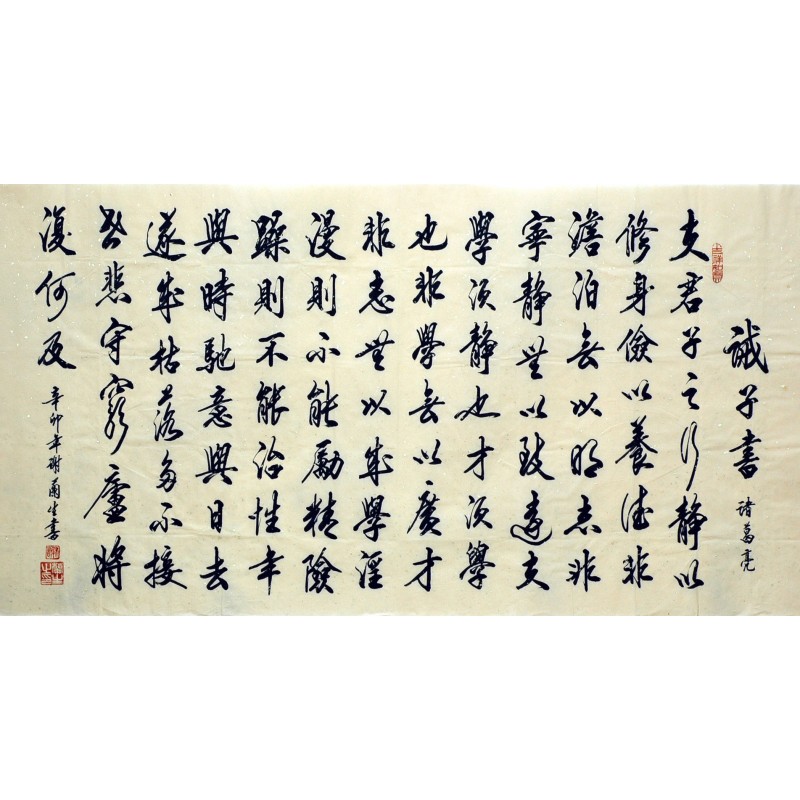 誡子書
諸葛亮
夫君子之行静以
修身儉以養德非
澹泊無以明志非
寧静無以致遠夫
學須静也才須學
也非學無以廣才
非志無以成學淫
漫則不能勵精險
躁則不能治性年
與時馳意與日去
遂成枯落多不接
世悲守窮廬將
復何及
辛卯年謝生書